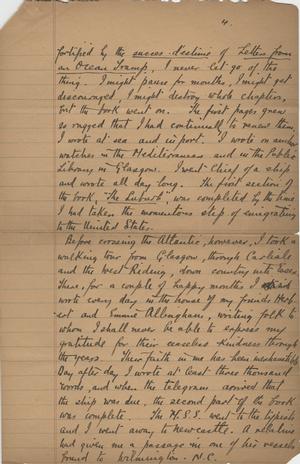 4.
fortified by the succès d'estime of Letters from
an Ocean Tramp, I never let go of the
thing. I might pause for months, I might get
discouraged, I might destroy whole chapters,
but the book went on. The first pages grew
so rugged that I had continually to renew them.
I wrote at sea and in port. I wrote on anchor
watches in the Mediterranean and in the Public
Library in Glasgow. I went Chief of a ship
and wrote all day long. The first section of
the book, "The Suburb", was completed by the time
I had taken the momentous step of emigrating
to the United States.
Before crossing the Atlantic, however, I took a
walking tour from Glasgow, through Carlisle
and the West Riding, down country into Essex.
There, for a couple of happy months I
wrote every day in the house of my friends Herb-
ert and Emmie Allingham, writing folk to
whom I shall never be able to express my
gratitude for their ceaseless kindness through
the years. Their faith in me has been inexhaustible.
Day after day I wrote at least three thousand
words, and when the telegram arrived that
the ship was due, the second part of the book
was complete. The M.S.S. went to the typists
and I went away to Newcastle. A relative
had given me a passage in one of his vessels
bound to Wilmington. N.C.